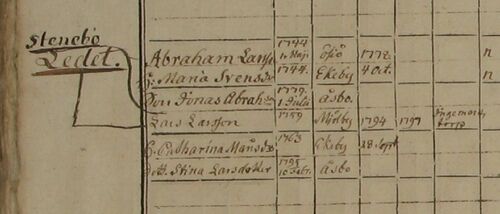 Stenebo
Ledet.
Abraham Larss 1744 1 Maji Åsbo 1772. n
H. Maria Svensdr 1744. Ekeby 4 Oct. n
Son Jonas Abrahson 1779. 1 Julii Åsbo.
Lars Larsson 1759 Mjölby 1794 1797
H. Catharina Månsdr 1763 Ekeby 28 Sept
dott. Stina Larsdotter 1795 10 Febr. Åsbo